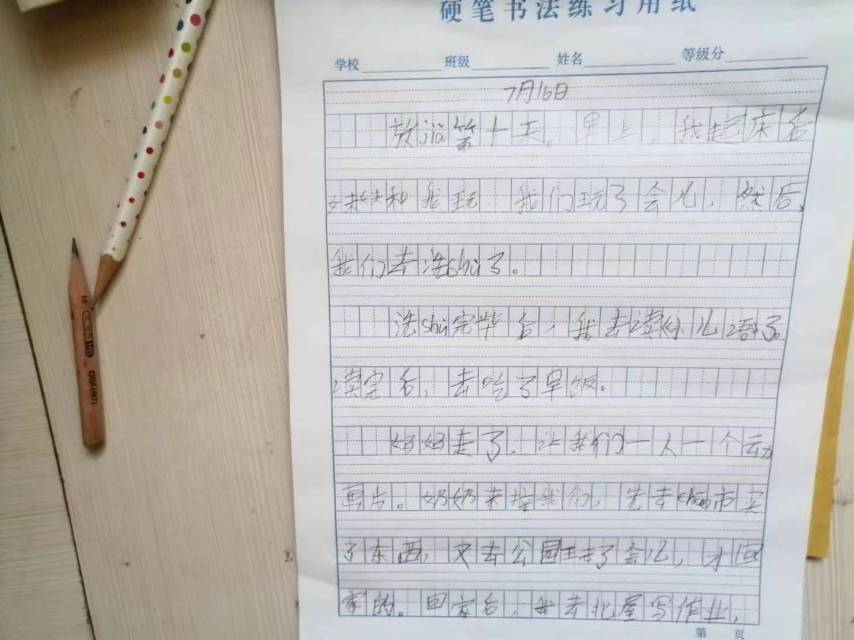 硬笔书法练习用纸
学校 班级 姓名 等级分
7月16日
放jià第十天。早上,我起床后
妹妹和我玩 我们玩了会儿,然后,
我们去洗shù了。
洗shù完毕后,我去读幼儿语了
读完后,去吃了早饭。
妈妈走了,让我们一人一个动
画片。奶奶来接我们,先去chāo市买
了东西,又去公园玩了会儿,才回
家的。回家后,我去北屋写作业,
第 页